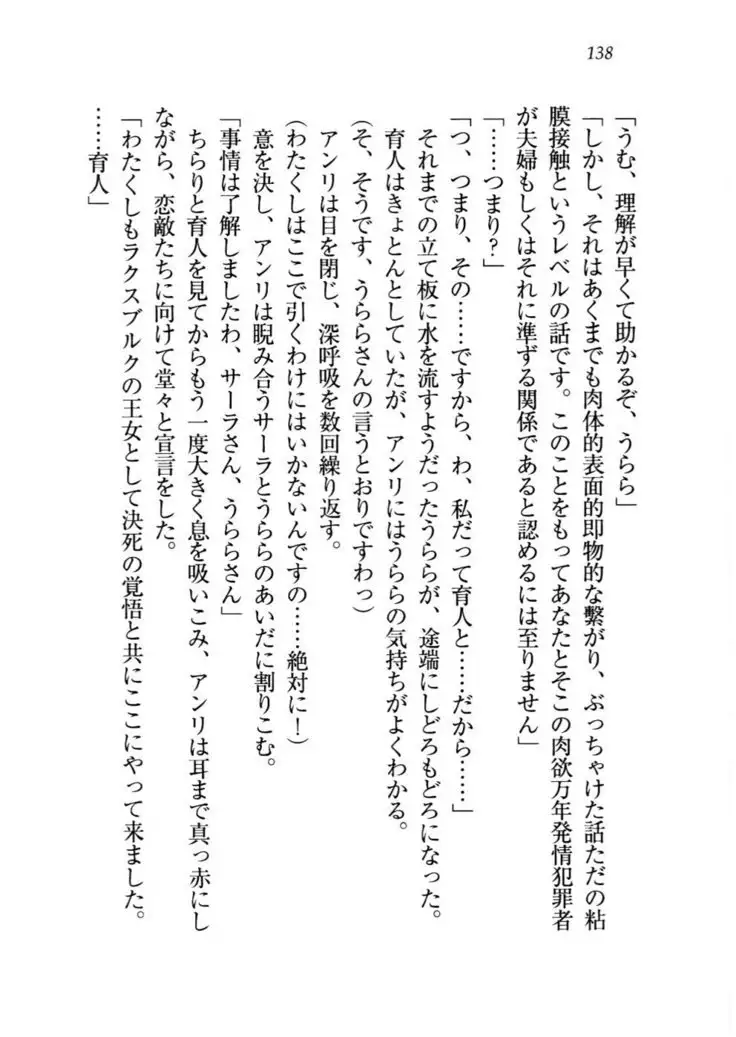 138
「うむ、理解が早くて助かるぞ、うらら」
「しかし、それはあくまでも肉体的表面的即物的な繋がり、ぶっちゃけた話ただの粘
膜接触というレベルの話です。このことをもってあなたとそこの肉欲万年発情犯罪者
が夫婦もしくはそれに準ずる関係であると認めるには至りません」
「……つまり?」
「つ、つまり、その……ですから、わ、私だって育人と……だから……」
それまでの立て板に水を流すようだったうららが、途端にしどろもどろになった。
育人はきょとんとしていたが、アンリにはうららの気持ちがよくわかる。
(そ、そうです、うららさんの言うとおりですわっ)
アンリは目を閉じ、深呼吸を数回繰り返す。
(わたくしはここで引くわけにはいかないんですの……絶対に!)
意を決し、アンリは睨み合うサーラとうららのあいだに割りこむ。
「事情は了解しましたわ、サーラさん、うららさん」
ちらりと育人を見てからもう一度大きく息を吸いこみ、アンリは耳まで真っ赤にし
ながら、恋敵たちに向けて堂々と宣言をした。
「わたくしもラクスブルクの王女として決死の覚悟と共にここにやって来ました。
……育人」